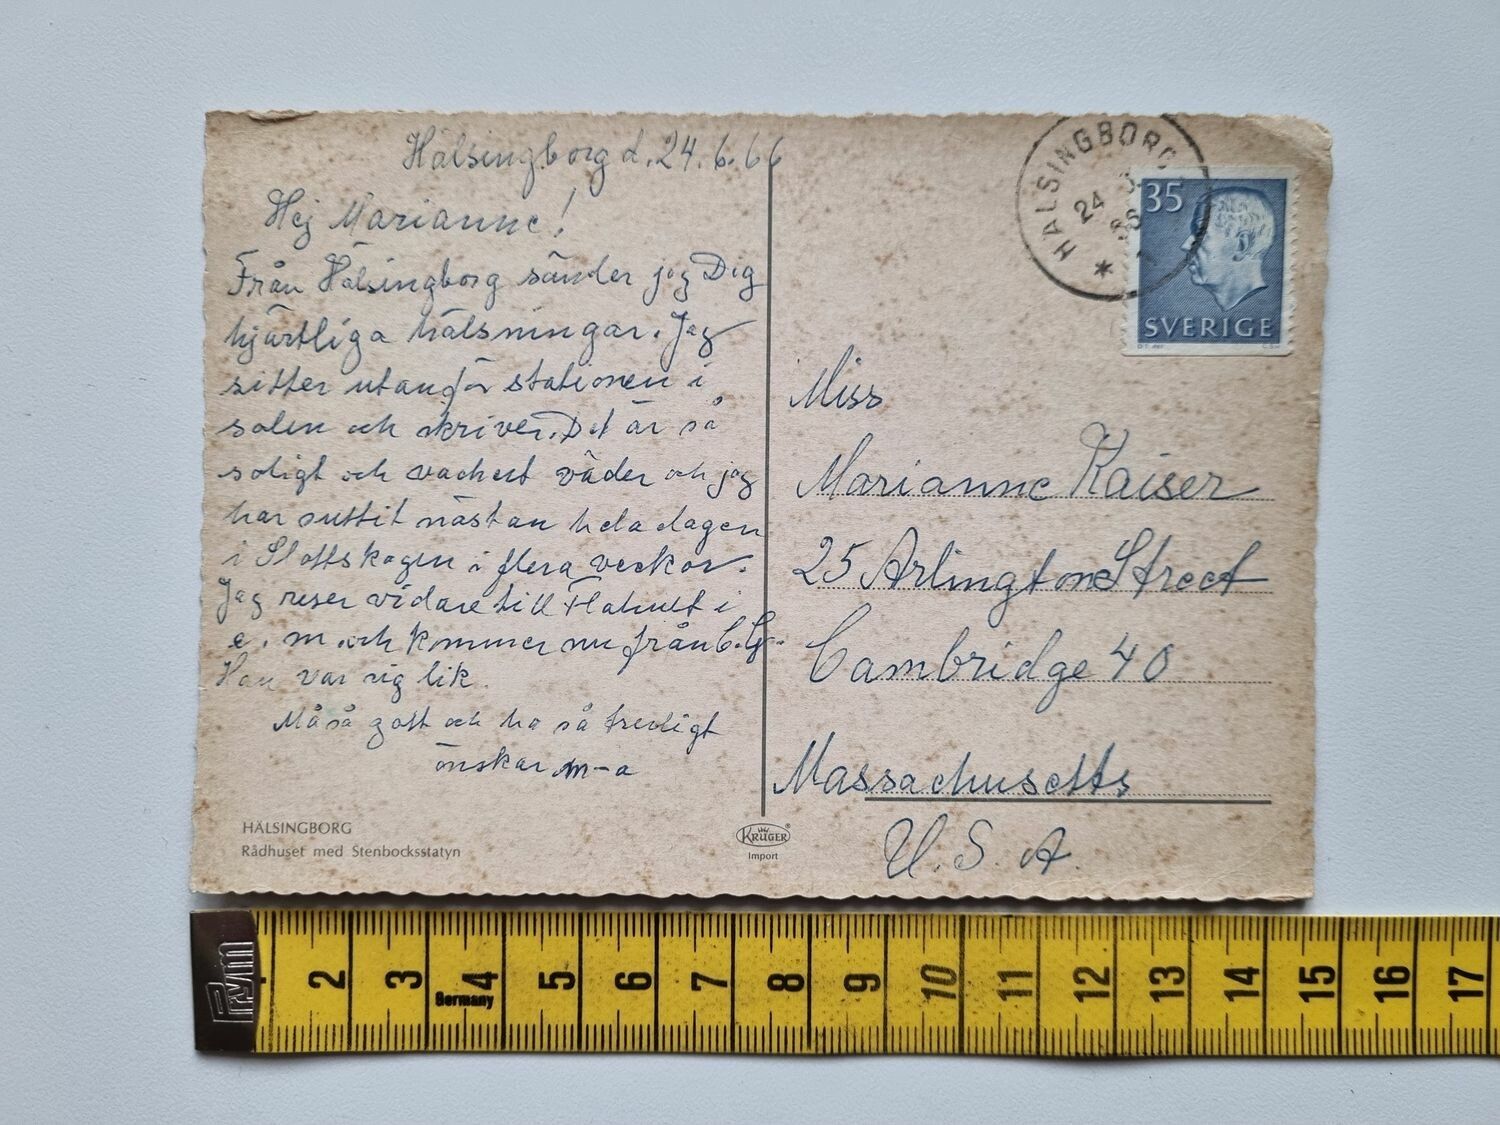 Hälsingborg d. 24.6.66
Hej Marianne!
Från Hälsingborg sänder jag Dig
hjärtliga hälsningar. Jag
sitter utanför stationen i
solen och skriver. Det är så
soligt och vackert väder och jag
har suttit nästan hela dagen
i Slottskogen i flera veckor.
Jag reser vidare till i
e.m och kommer nu från G.
Han var sig lik.
Må så gott och ha så trevligt
önskar m-a
HÄLSINGBORG
Rådhuset med Stenbocksstatyn
KRÜGER
Import
HÄLSINGBORG
24
66
35
SVERIGE
Miss
Marianne Kaiser
25 Arlington Street
Cambridge 40
Massachusetts
U.S.A.
Prym
2 3 4 5 6 7 8 9 10 11 12 13 14 15 16 17
Germany